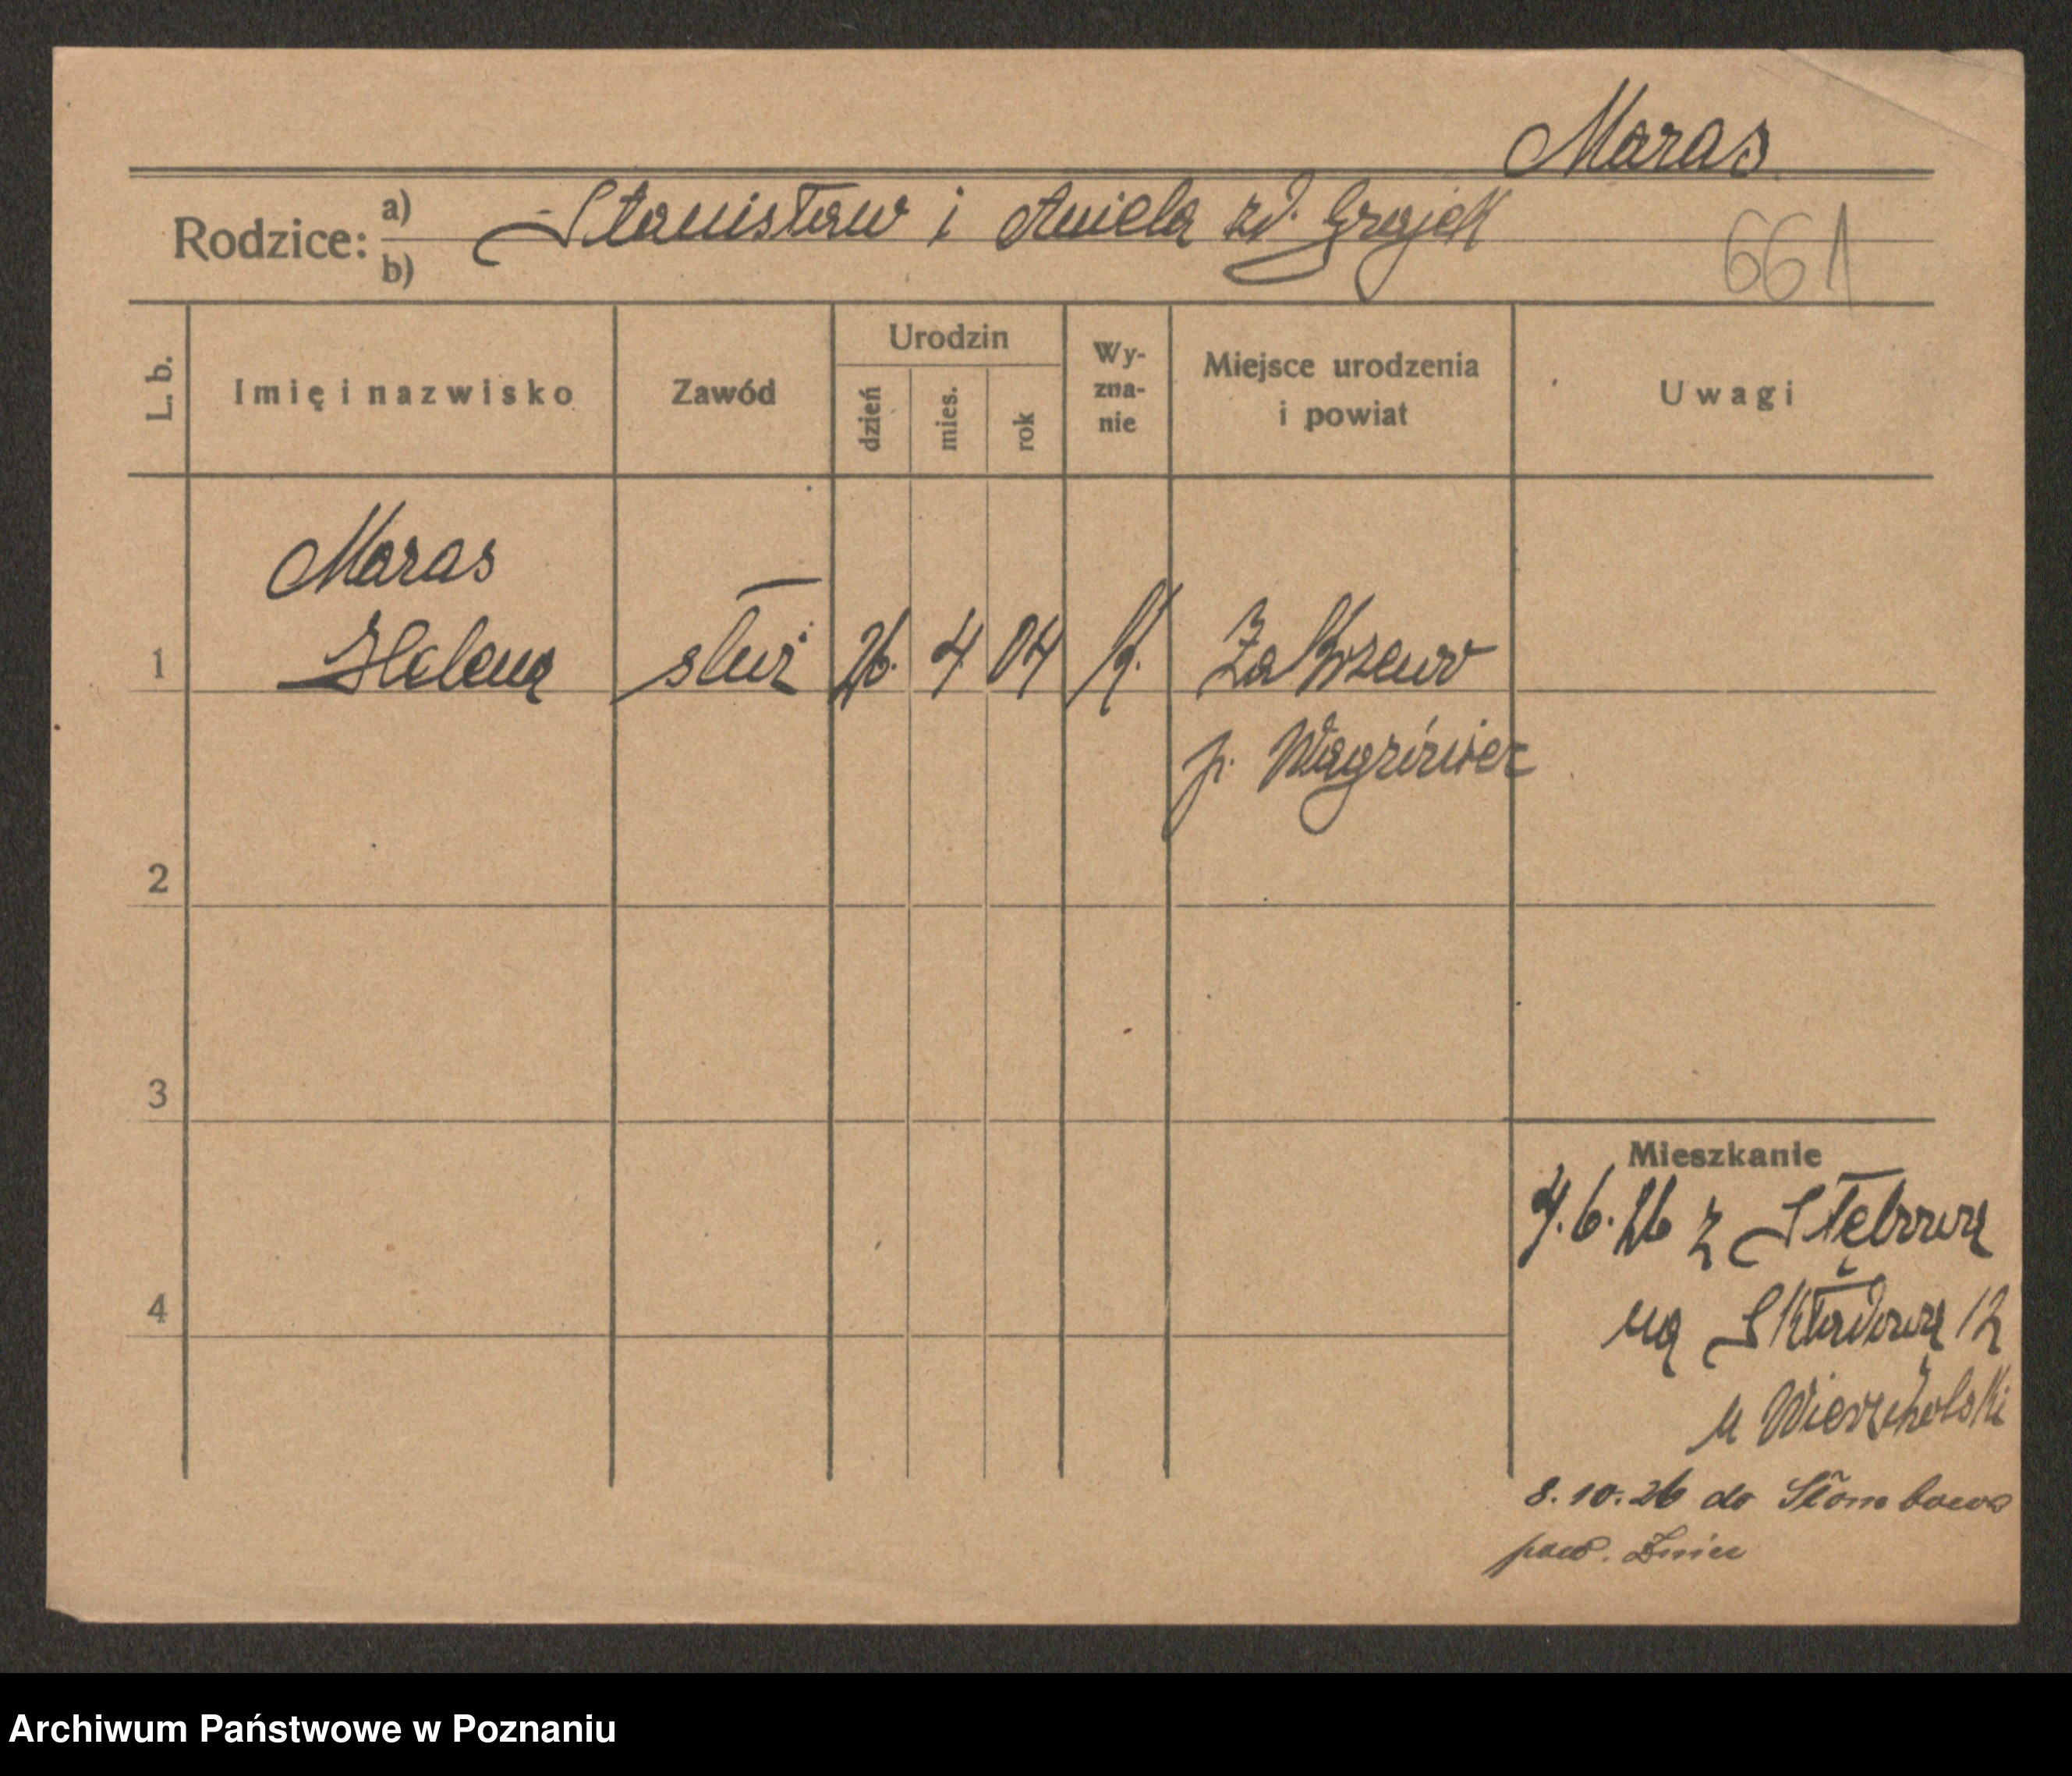 Maras
Rodzice: a) Stanisław i Aniela zd. Grajek
b)
661
L. b.
Imię i nazwisko
Zawód
Urodzin
dzień
mies.
rok
Wy-
zna-
nie
Miejsce urodzenia
i powiat
Uwagi
Maras
1 Helena służ 26. 4 04 k. Zakrzewo
p. Wągrówiec
2
3
4
Mieszkanie
4.6.26 z
na Składową 12
u Wierzcholski
8.10.26 do
pow. Żnin
Archiwum Państwowe w Poznaniu